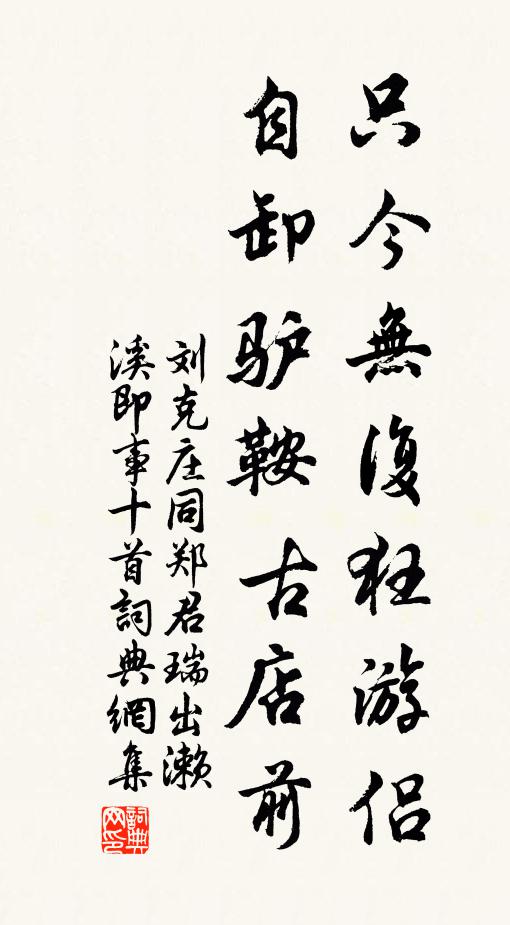 只今無復狂游侣
自卸驴鞍古店前
刘克庄同郑君瑞出濑
溪即事十首詞典網集
詞典
网印